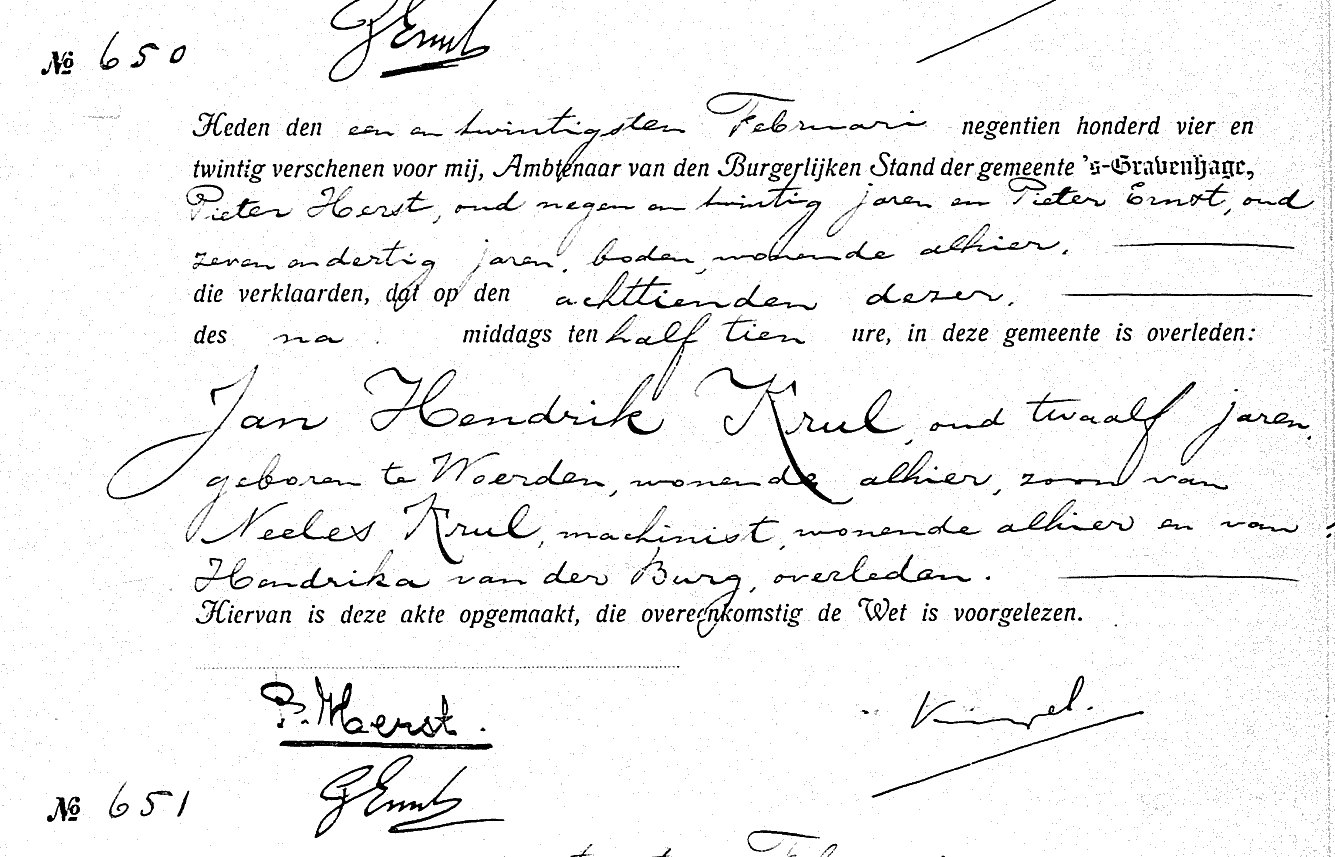 No 650
Heden den een en twintigsten Februari negentien honderd vier en
twintig verschenen voor mij, Ambtenaar van den Burgerlijken Stand der gemeente 's-Gravenhage,
Pieter Herst, oud negen en twintig jaren en Pieter Ernst, oud
zeven en dertig jaren, boden, wonende alhier.
die verklaarden, dat op den achttienden dezer.
des na middags ten half tien ure, in deze gemeente is overleden:
Jan Hendrik Krul, oud twaalf jaren,
geboren te Woerden, wonende alhier, zoon van
Neeles Krul, machinist, wonende alhier en van
Hendrika van der Burg, overleden.
Hiervan is deze akte opgemaakt, die overeenkomstig de Wet is voorgelezen.
P. Herst.
No 651